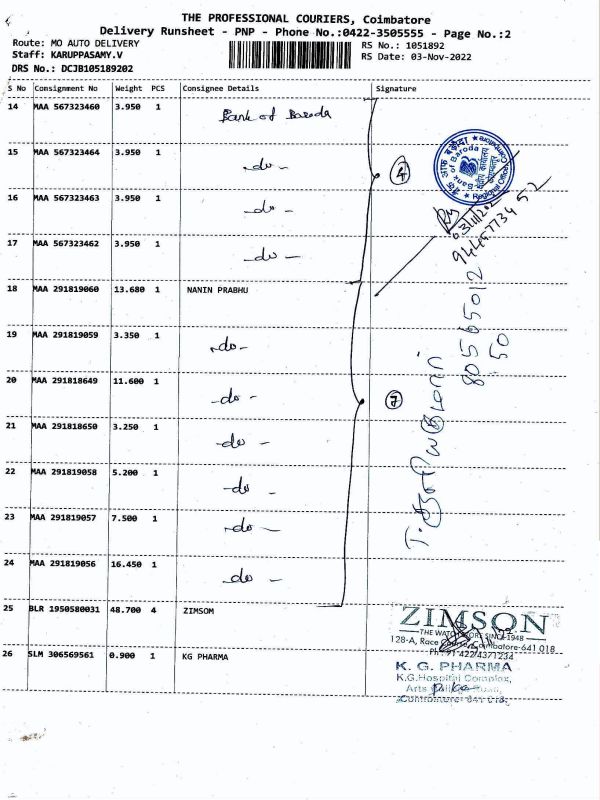 THE PROFESSIONAL COURIERS, Coimbatore
Delivery Runsheet - PNP - Phone No.:0422-3505555 - Page No.:2
Route: MO AUTO DELIVERY
Staff: KARUPPASAMY.V
DRS No.: DCJB105189202
RS No.: 1051892
RS Date: 03-Nov-2022
S No Consignment No Weight PCS Consignee Details Signature
14 MAA 567323460 3.950 1 Bank of Baroda
15 MAA 567323464 3.950 1 -do-
4
16 MAA 567323463 3.950 1 -do-
17 MAA 567323462 3.950 1 -do-
बैंक ऑफ़ बड़ौदा
Bank of Baroda
Regional Office
9445773452
18 MAA 291819060 13.680 1 NANIN PRABHU
19 MAA 291819059 3.350 1 -do-
20 MAA 291818649 11.600 1 -do-
7
21 MAA 291818650 3.250 1 -do-
22 MAA 291819058 5.200 1 -do-
23 MAA 291819057 7.500 1 -do-
24 MAA 291819056 16.450 1 -do-
8056501250
25 BLR 1950580031 48.700 4 ZIMSOM
ZIMSON
THE WATCH STORE SINCE 1948
128-A, Race Course, Coimbatore-641 018.
Ph : 91-422 4371234
26 SLM 306569561 0.900 1 KG PHARMA
K. G. PHARMA
K.G.Hospital Complex,
Arts College Road,
Coimbatore 641 018.